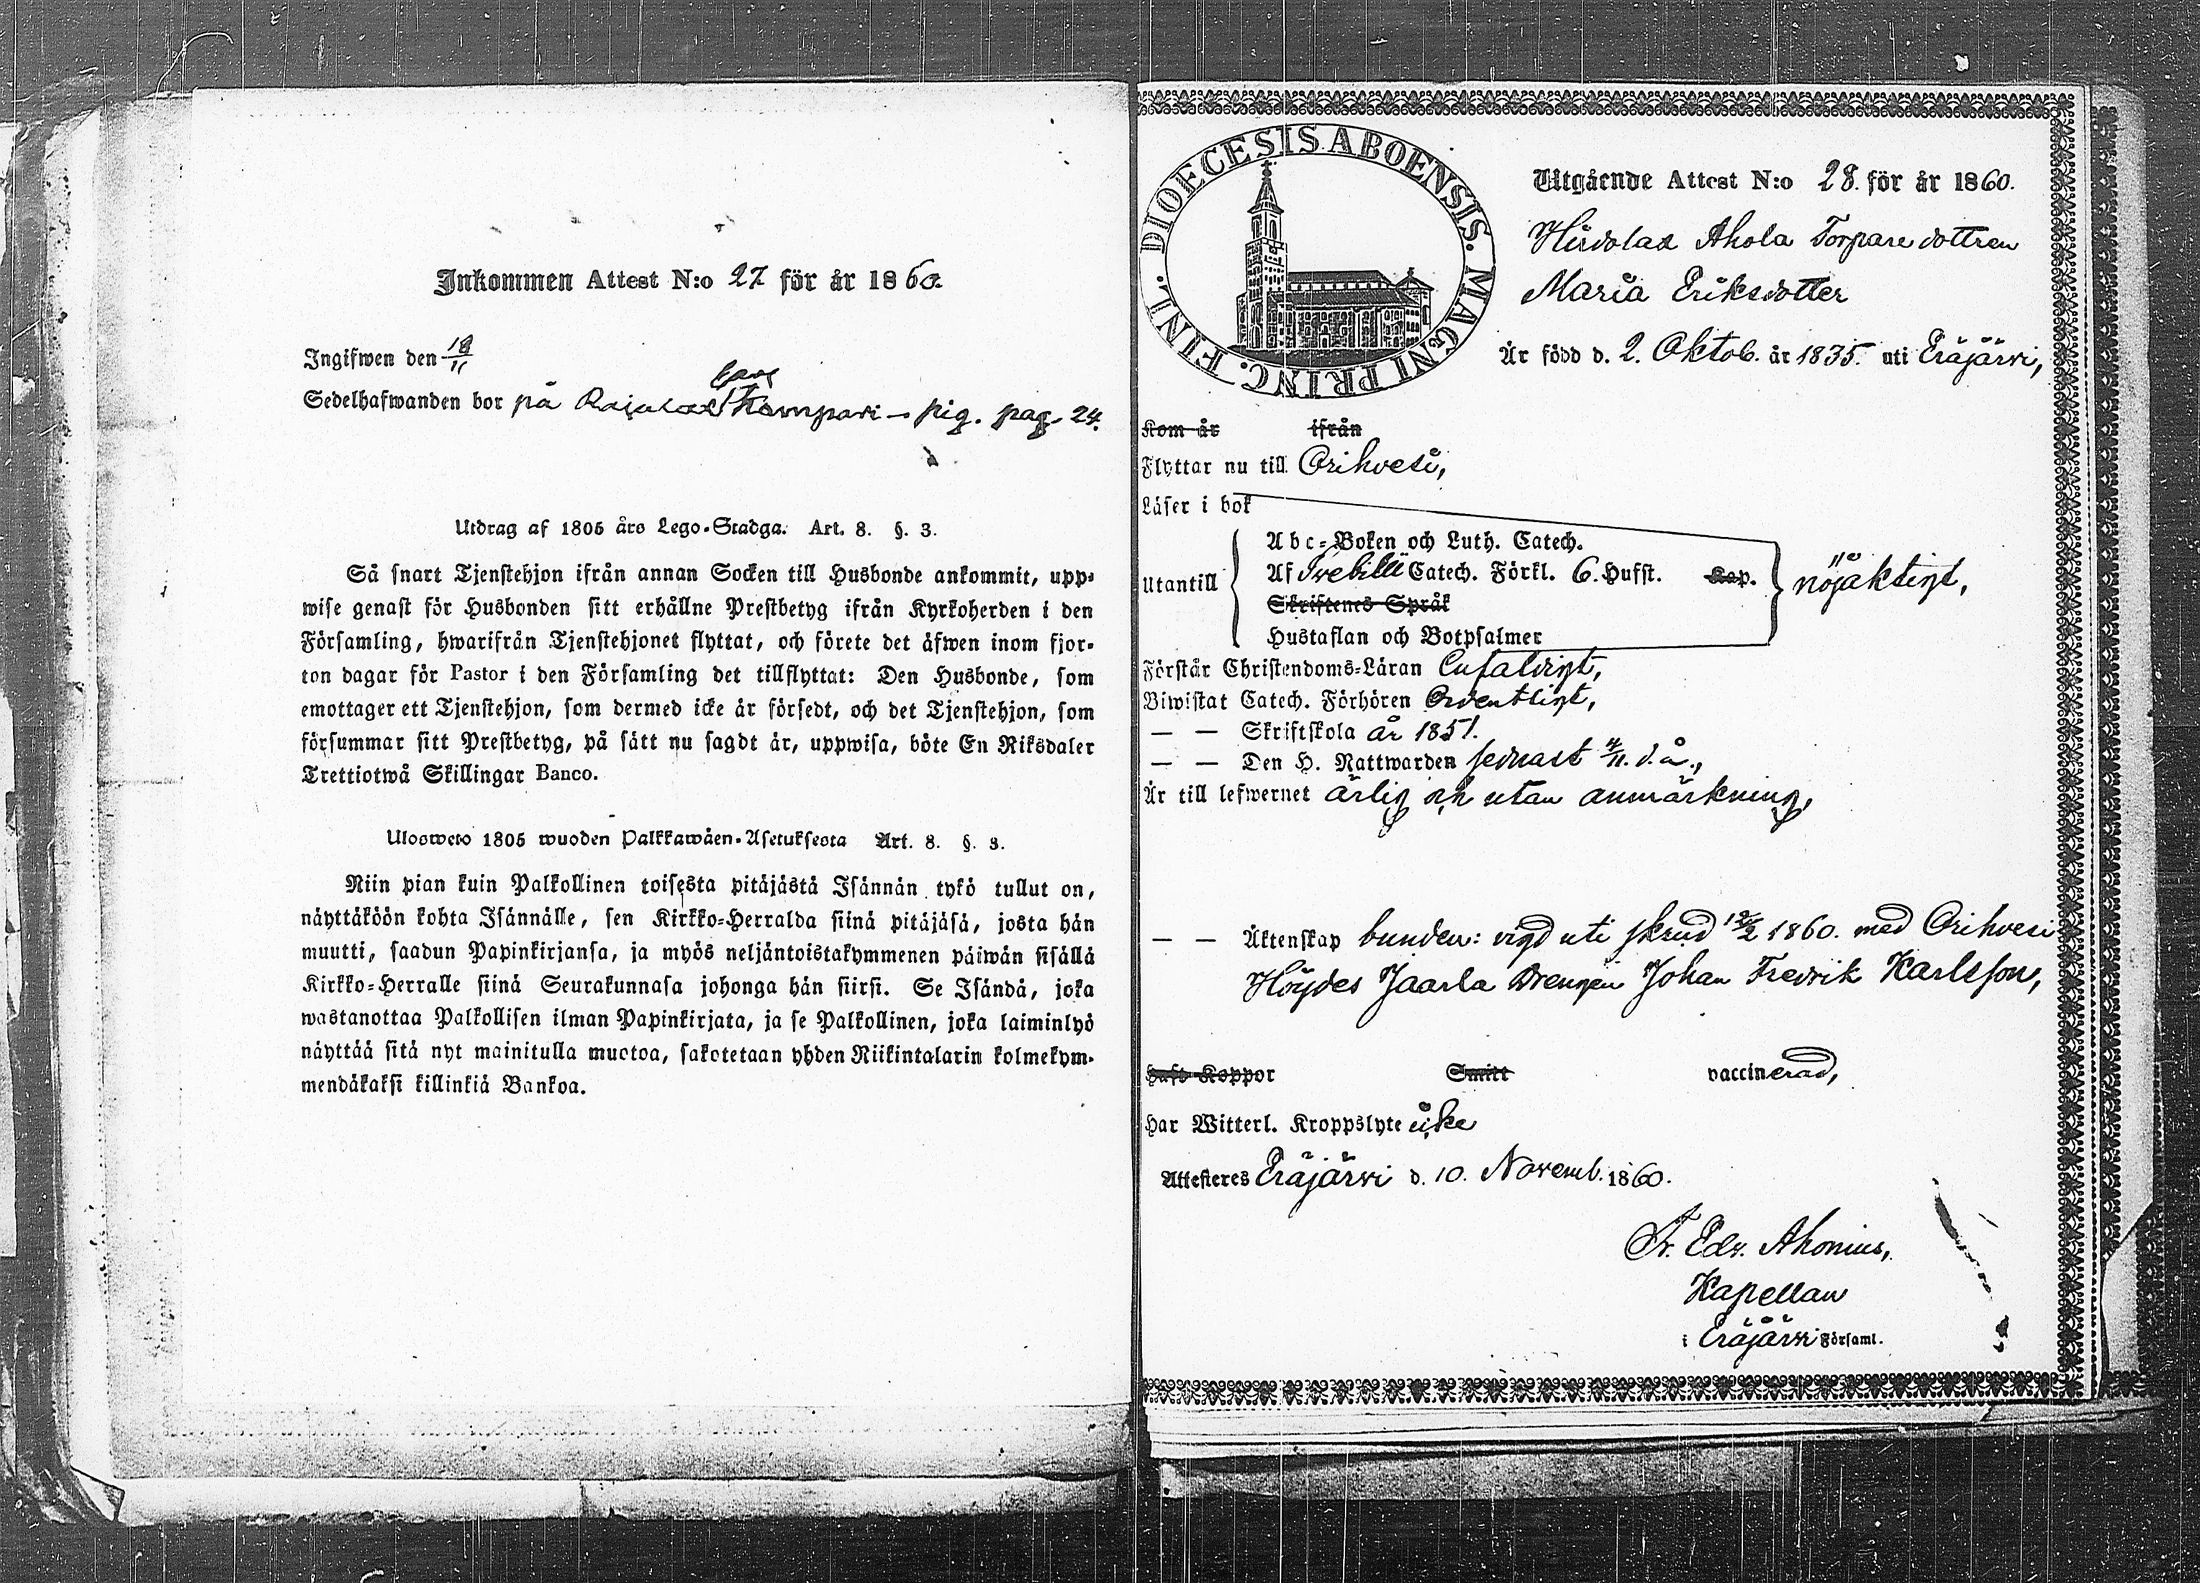 Inkommen Attest N:o 27 för år 1860.
Ingifwen den 18/11
Sedelhafwanden bor på Kampari – pig. pag. 24.
Utdrag af 1805 års Lego-Stadga. Art. 8. §. 3.
Så snart Tjenstehjon ifrån annan Socken till Husbonde ankommit, upp-
wise genast för Husbonden sitt erhållne Prestbetyg ifrån Kyrkoherden i den
Församling, hwarifrån Tjenstehjonet flyttat, och förete det äfwen inom fjor-
ton dagar för Pastor i den Församling det tillflyttat: Den Husbonde, som
emottager ett Tjenstehjon, som dermed icke är försedt, och det Tjenstehjon, som
försummar sitt Prestbetyg, på sätt nu sagdt är, uppwisa, böte En Riksdaler
Trettiotwå Skillingar Banco.
Ulosweto 1805 wuoden Palkkawäen-Asetuksesta Art. 8. §. 3.
Niin pian kuin Palkollinen toisesta pitäjästä Isännän tykö tullut on,
näyttäköön kohta Isännälle, sen Kirkko-Herralda siinä pitäjäsä, josta hän
muutti, saadun Papinkirjansa, ja myös neljäntoistakymmenen päiwän sisällä
Kirkko-Herralle siinä Seurakunnasa johonga hän siirsi. Se Isändä, joka
wastanottaa Palkollisen ilman Papinkirjata, ja se Palkollinen, joka laiminlyö
näyttää sitä nyt mainitulla muotoa, sakotetaan yhden Riikintalarin kolmekym-
mendäkaksi killinkiä Bankoa.
DIOECESIS ABOENSIS. MAGNI PRINC. FINL.
Utgående Attest N:o 28. för år 1860.
Hirvolax Ahola Torpare dottren
Maria Eriksdotter
Är född d. 2. Oktob. år 1835. uti Eräjärvi,
Kom år ifrån
Flyttar nu till Orihvesi,
Läser i bok
Abc-Boken och Luth. Catech.
Utantill Af Svebilii Catech. Förkl. 6. Hufst. Kap. nöjaktigt,
Skriftenes Språk
Hustaflan och Botpsalmer
Förstår Christendoms-Läran Enfaldigt,
Biwistat Catech. Förhören Ordentligt,
— — Skriftskola år 1851.
— — Den H. Nattwarden sednast 4/11. d. å.,
Är till lefwernet ärlig och utan anmärkning,
— — Äktenskap bunden: vigd uti skrud 12/2 1860. med Orihvesi
Höydes Jaarla Drengen Johan Fredrik Karlsson,
Haft Koppor Smitt vaccinerad,
Har Witterl. Kroppslyte icke
Attesteres Eräjärvi d. 10. Novemb. 1860.
Fr. Edv. Ahonius,
Kapellan
i Eräjärvi Församl.